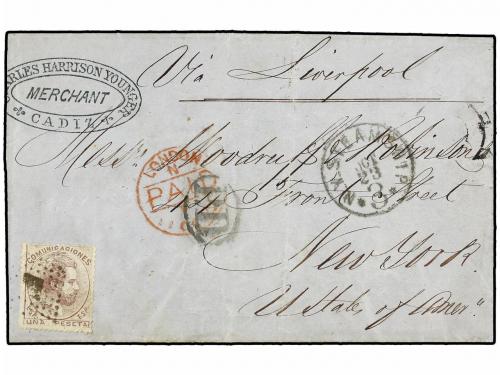 CHARLES HARRISON YOUNGER
MERCHANT
CADIZ
Via Liverpool
Messrs Woodruff & Robinson
44 Front Street
New York
U States of Amer"
LONDON
PAID
N.Y. STEAMSHIP
OCT
23
COMUNICACIONES
UNA PESETA